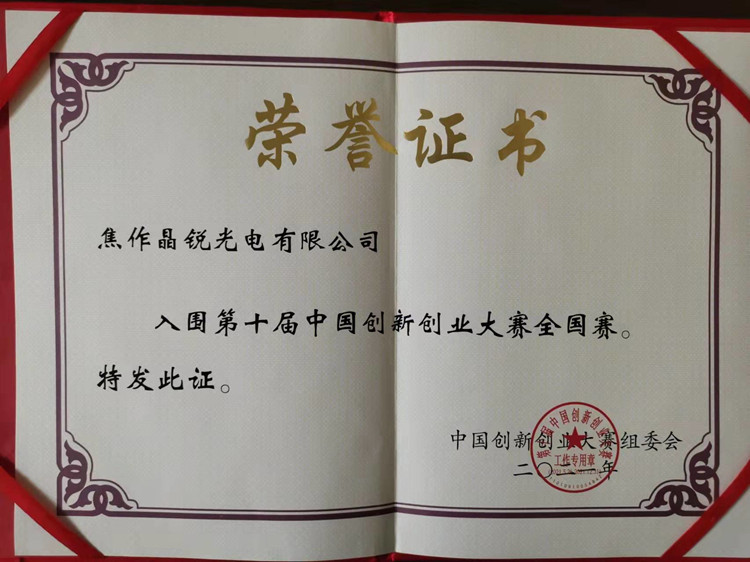 荣誉证书
焦作晶锐光电有限公司
入围第十届中国创新创业大赛全国赛。
特发此证。
中国创新创业大赛组委会
二〇二一年
工作专用章